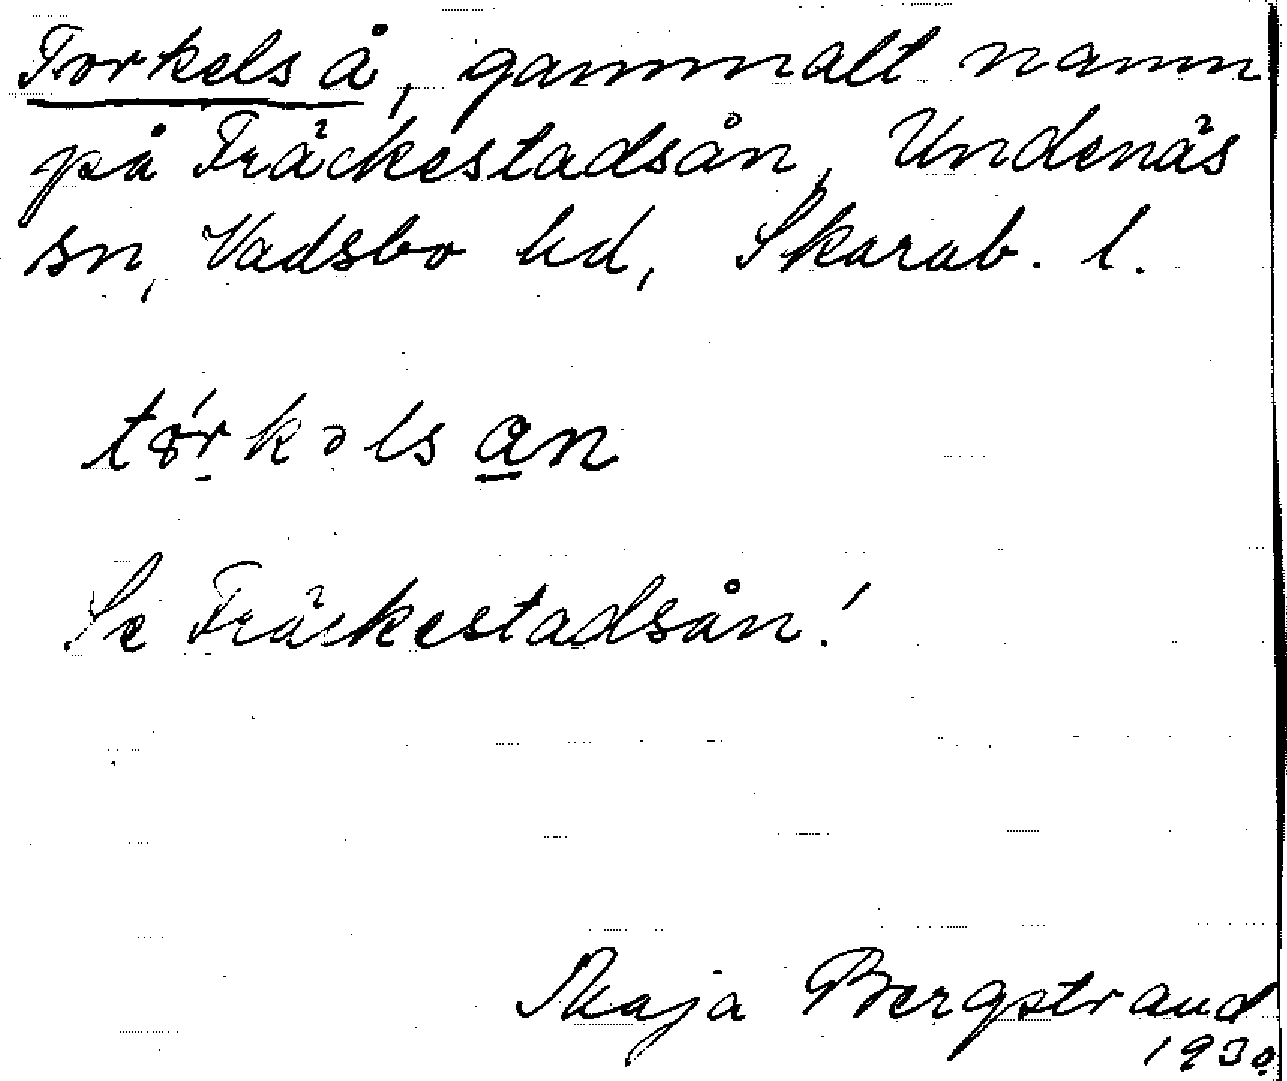 Torkels å, gammalt namn
på Träckestadsån, Undenäs
sn, Vadsbo hd, Skarab. l.
tørkəlsan
Se Träckestadsån!
Maja Bergstrand
1930